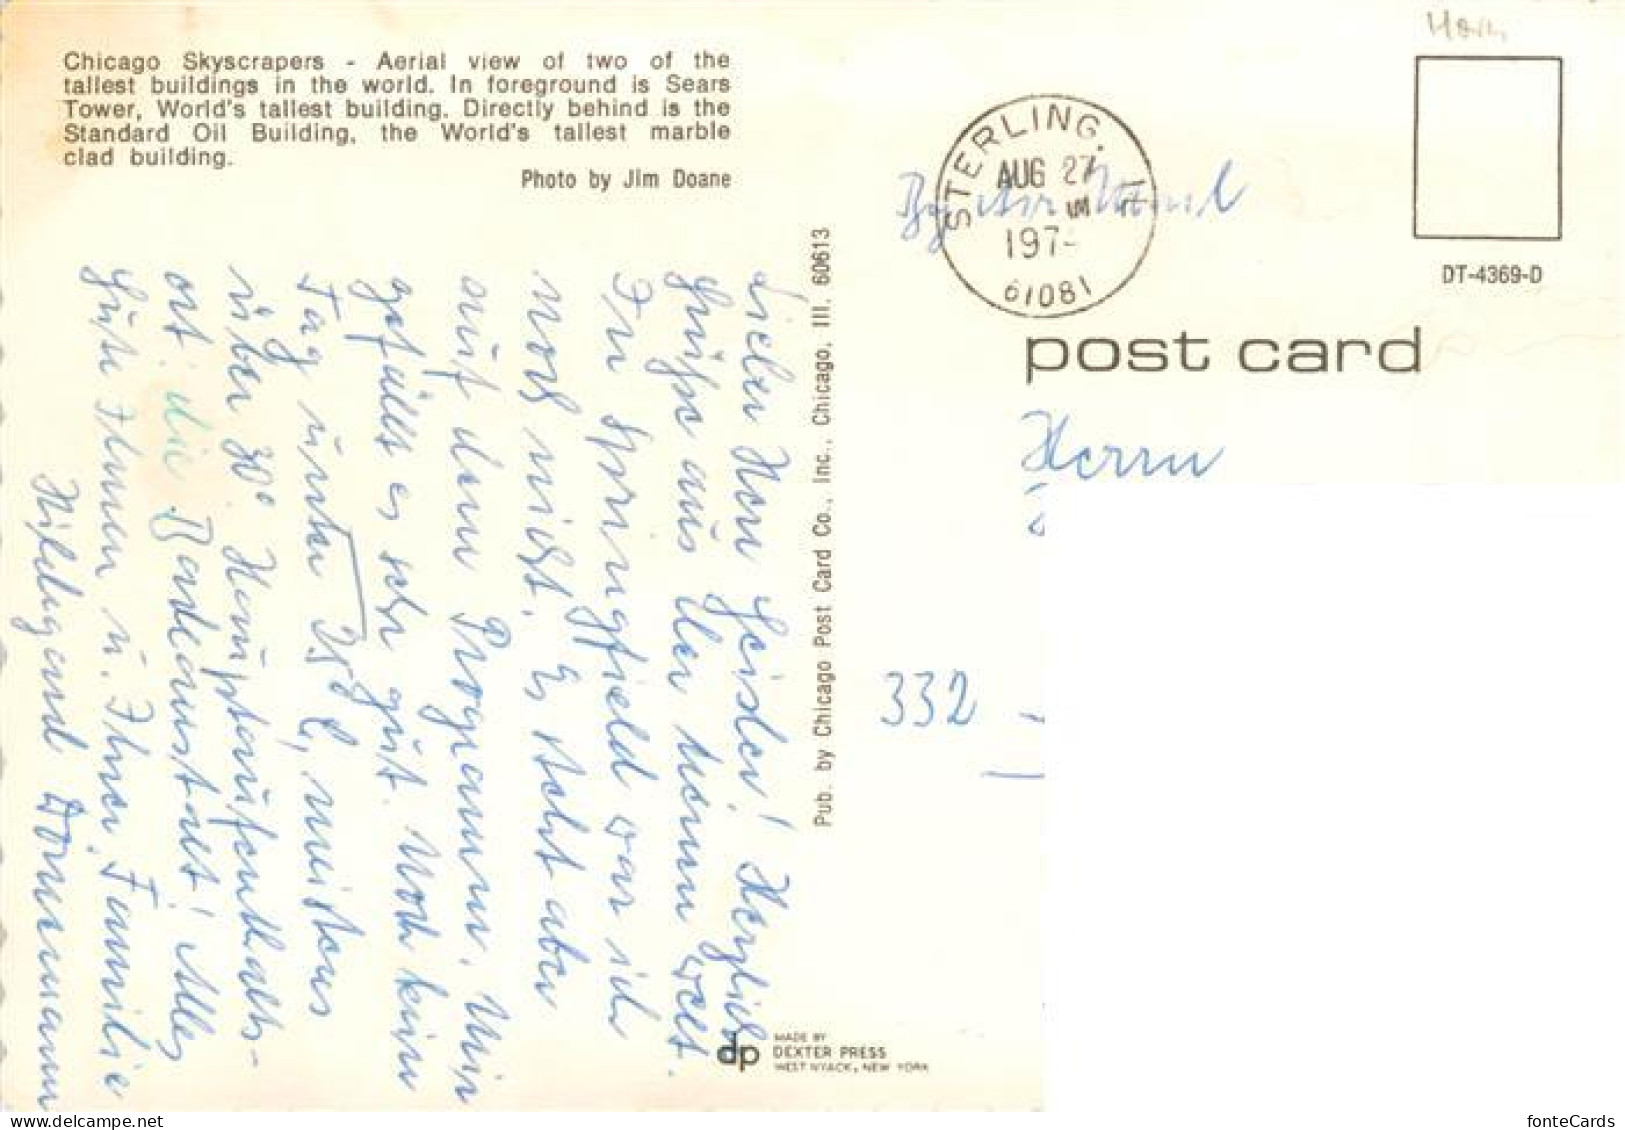 Chicago Skyscrapers - Aerial view of two of the
tallest buildings in the world. In foreground is Sears
Tower, World's tallest building. Directly behind is the
Standard Oil Building, the World's tallest marble
clad building.
Photo by Jim Doane
Lieber Herr Geisler! Herzliche
Grüsse aus der neuen Welt.
In Springfield war ich
noch nicht. Es steht aber
auf dem Programm. Mir
gefällt es sehr gut. Noch kein
Tag unter 25°C, meistens
über 30°. Hauptaufenthalts-
ort die Badeanstalt! Alles
Gute Ihnen u. Ihrer Familie
Hildegard
Pub. by Chicago Post Card Co., Inc., Chicago, Ill. 60613
dp
MADE BY
DEXTER PRESS
WEST NYACK, NEW YORK
By Air Mail
STERLING, IL
AUG 27
197-
61081
DT-4369-D
post card
Herrn
332
fonteCards
delcampe.net